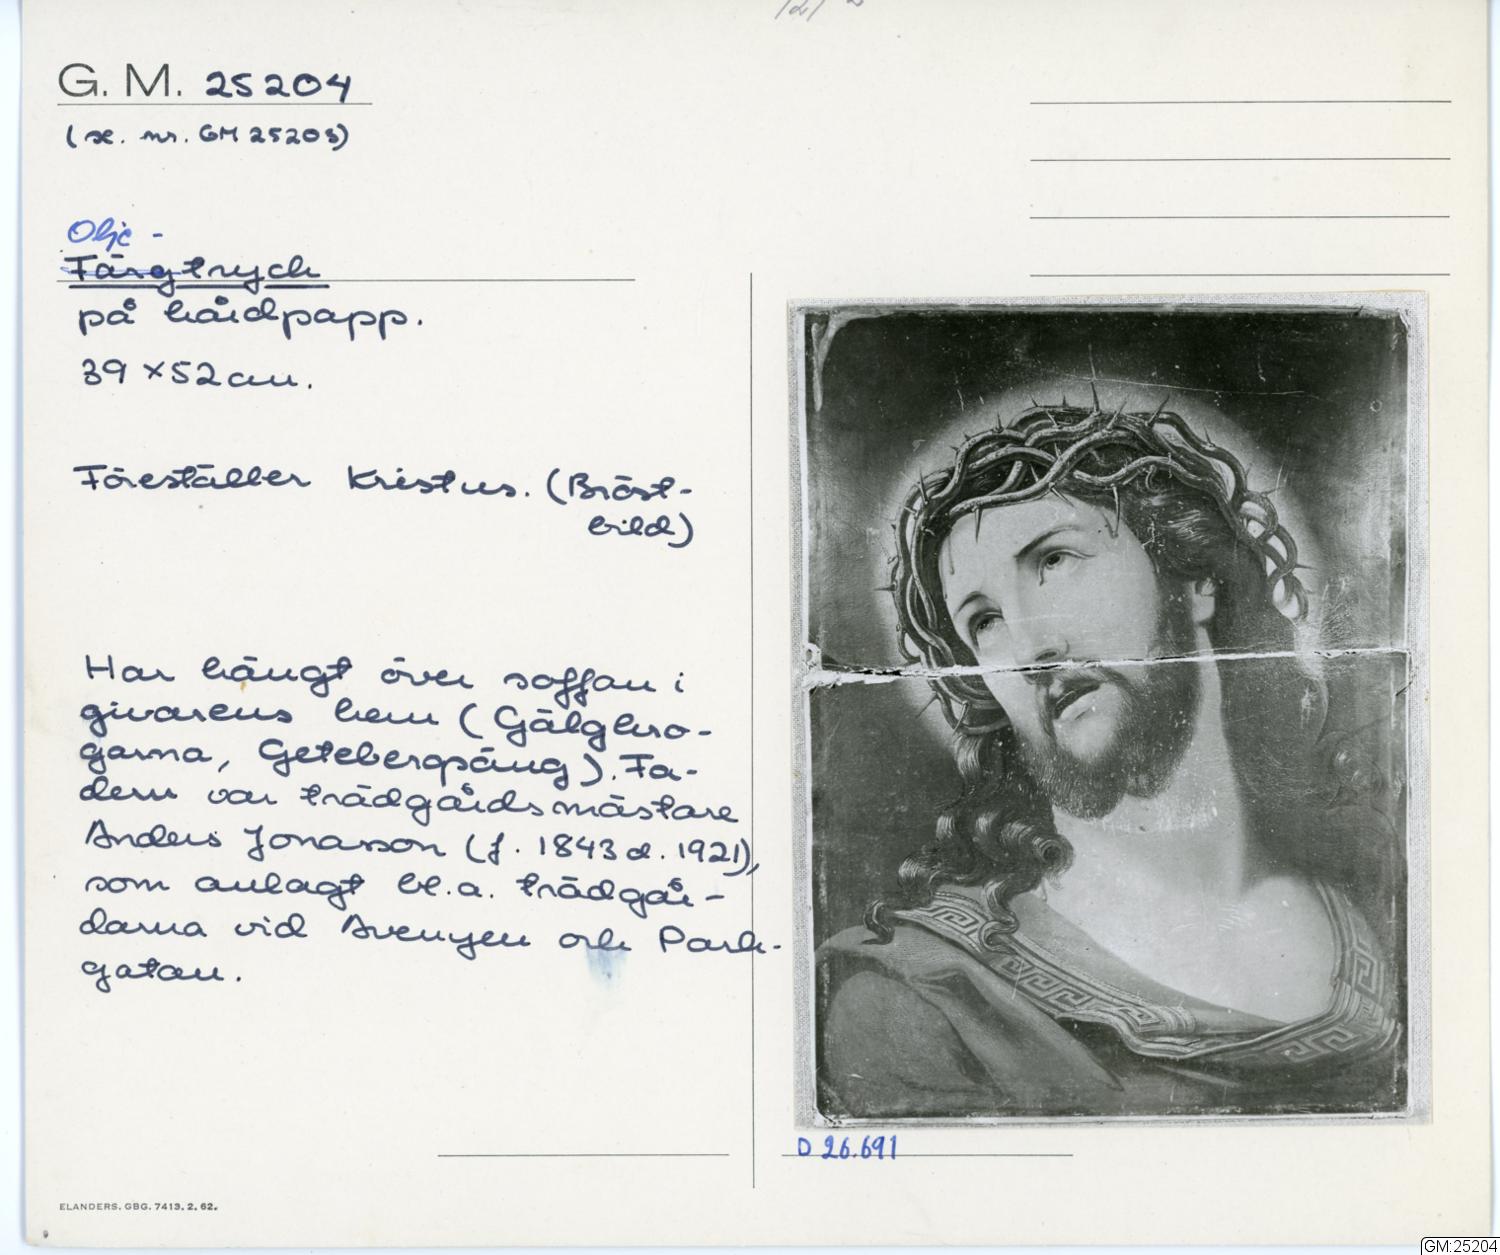 G. M. 25204
(se. nr. GM 25203)
Olje -
Färgtryck
på hårdpapp.
39 x 52 cm.
Föreställer Kristus. (Bröst-
bild)
Har hängt över soffan i
givarens hem (Gälgkro-
garna, Getebergsäng). Fa-
dern var trädgårdsmästare
Anders Jonasson (f. 1843 d. 1921),
som anlagt bl.a. trädgår-
darna vid Avenyen och Park-
gatan.
D 26.691
ELANDERS. GBG. 7413. 2. 62.
GM:25204